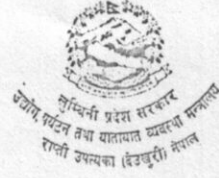 लुम्बिनी प्रदेश सरकार
उद्योग, पर्यटन तथा यातायात व्यवस्था मन्त्रालय
राप्ती उपत्यका (देउखुरी) नेपाल